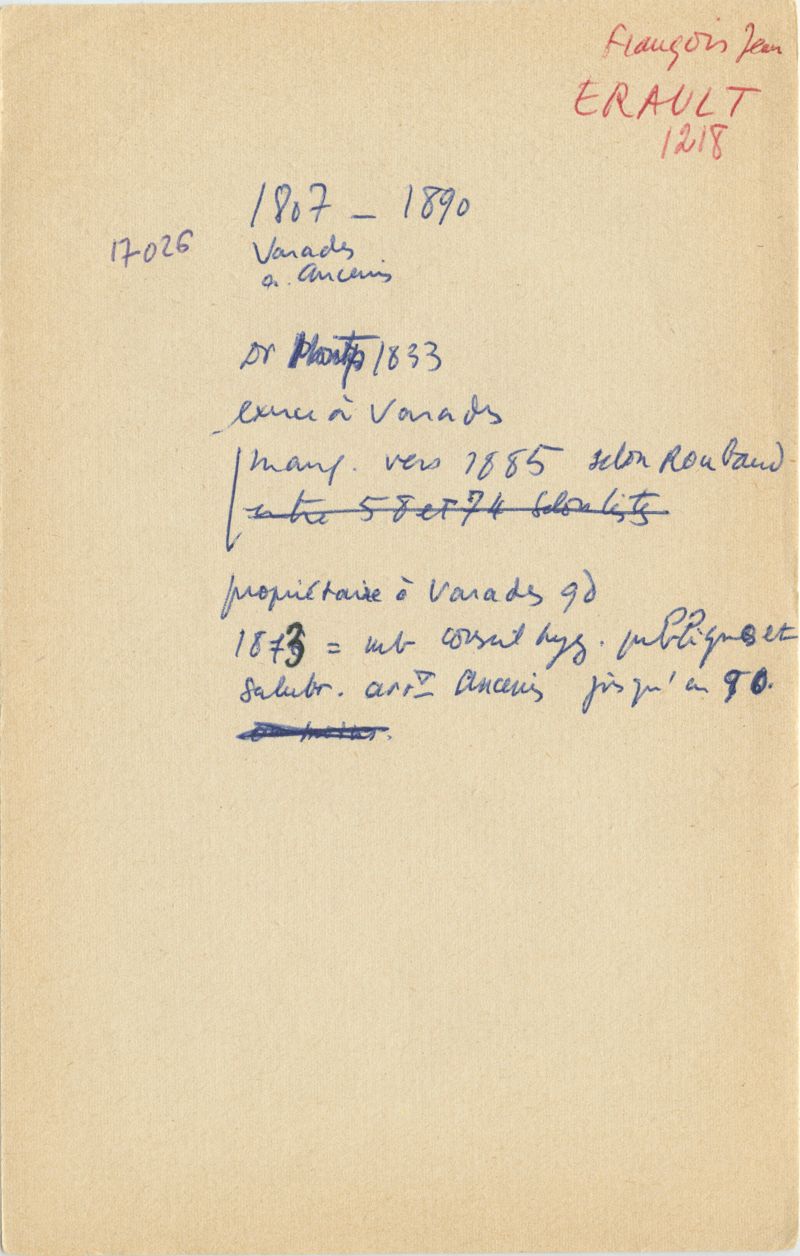 François Jean
ERAULT
1218
1807 – 1890
17-026
Varades
a. Ancenis
Dr 1833
exerce à Varades
manq. vers 1885 selon Roubaud
entre 58 et 74 selon lists
propriétaire à Varades 90
1873 = mb conseil hyg. publiques et
salubr. arrt Ancenis jusqu'en 90.